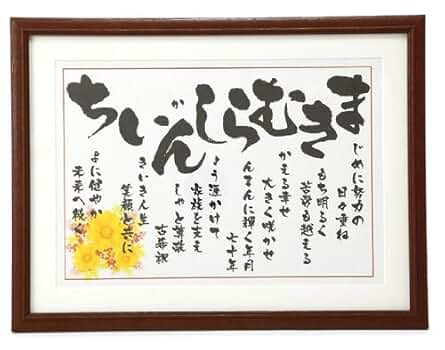 まじめに努力の
日々重ね
きもち明るく
苦労も越える
むかえる幸せ
大きく咲かせ
らんまんに輝く年月
七十年
しょう涯かけて
家族を支え
かんしゃと尊敬
古希祝
いきいき人生
笑顔と共に
ちよに健やか
未来へ続く